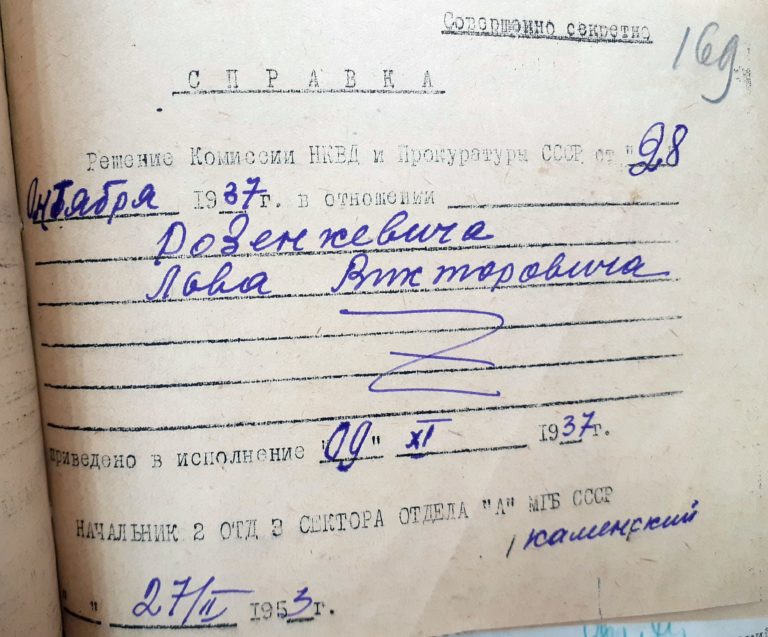 Совершенно секретно
169
СПРАВКА
Решение Комиссии НКВД и Прокуратуры СССР от "28"
октября 1937г. в отношении
Розенкевича
Льва Викторовича
приведено в исполнение "09" XI 1937г.
НАЧАЛЬНИК 2 ОТД 3 СЕКТОРА ОТДЕЛА "А" МГБ СССР
Каменский
" " 27/II 1953г.